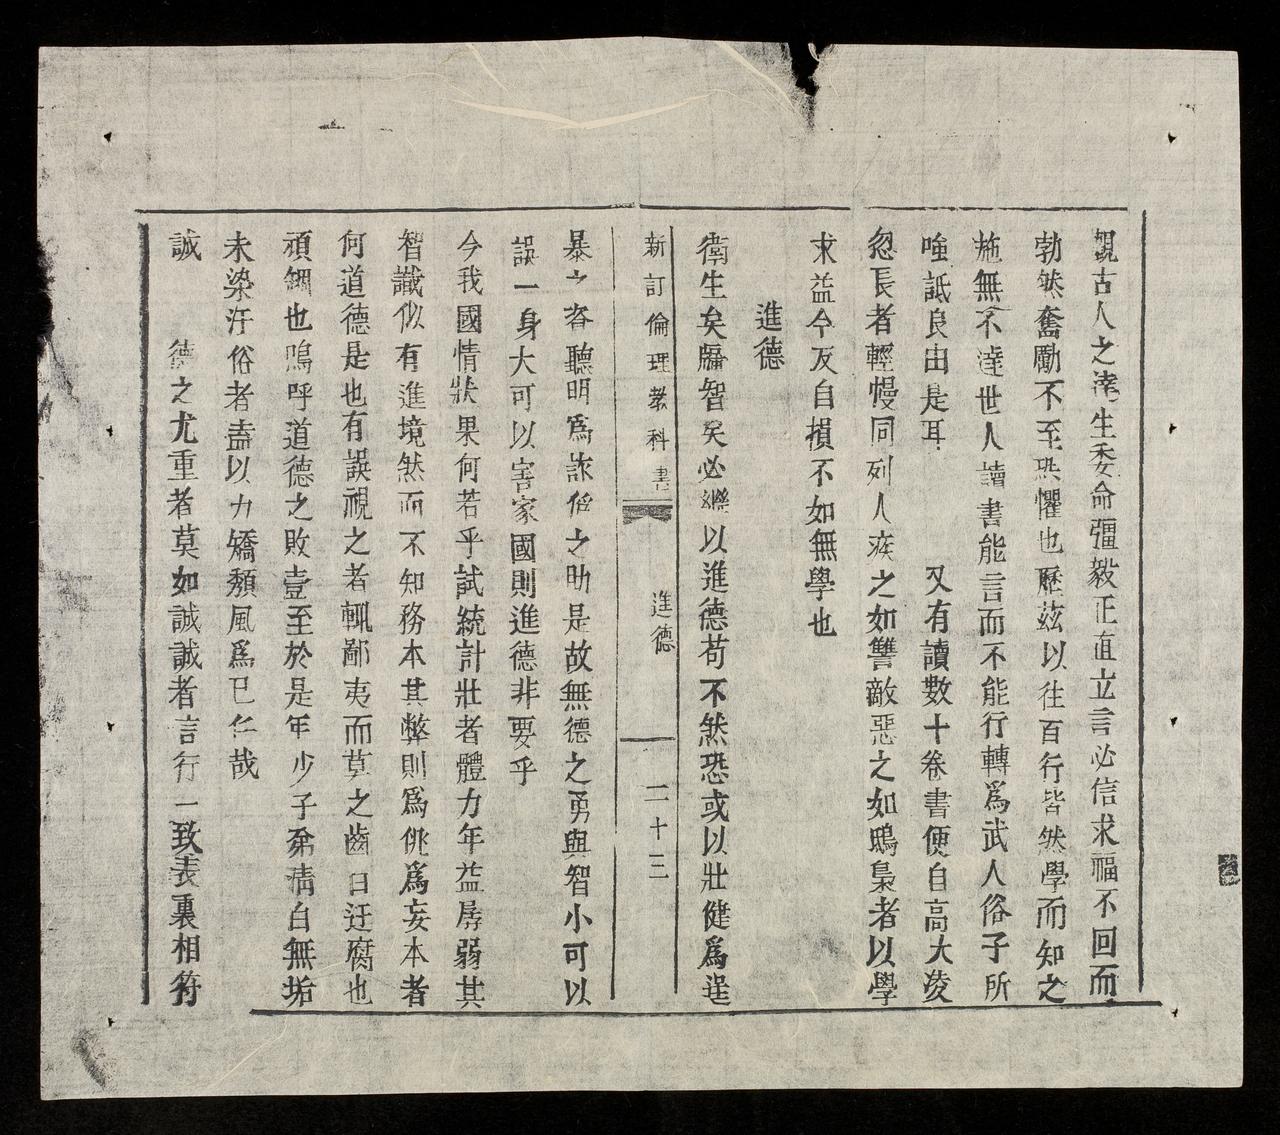 觀古人之達生委命彊毅正直立言必信求福不回而
勃然奮勵不至恐懼也歷茲以往百行皆然學而知之
施無不達世人讀書能言而不能行轉爲武人俗子所
嗤詆良由是耳 又有讀數十卷書便自高大淩
忽長者輕慢同列人疾之如讐敵惡之如鴟梟者以學
求益今反自損不如無學也
進德
衛生矣牖智矣必繼以進德苟不然恐或以壯健爲逞
新訂倫理教科書 進德 二十三
暴之 聽明爲 之助是故無德之勇與智小可以
誤一身大可以害家國則進德非要乎
今我國情狀果何若乎試統計壯者體力年益孱弱其
智識似有進境然而不知務本其弊則爲佻爲妄本者
何道德是也有誤視之者輒鄙夷而莫之齒曰迂腐也
頑錮也嗚呼道德之敗壹至於是年少子弟清白無垢
未染汙俗者盍以力矯頹風爲己仁哉
誠 德之尤重者莫如誠誠者言行一致表裏相符